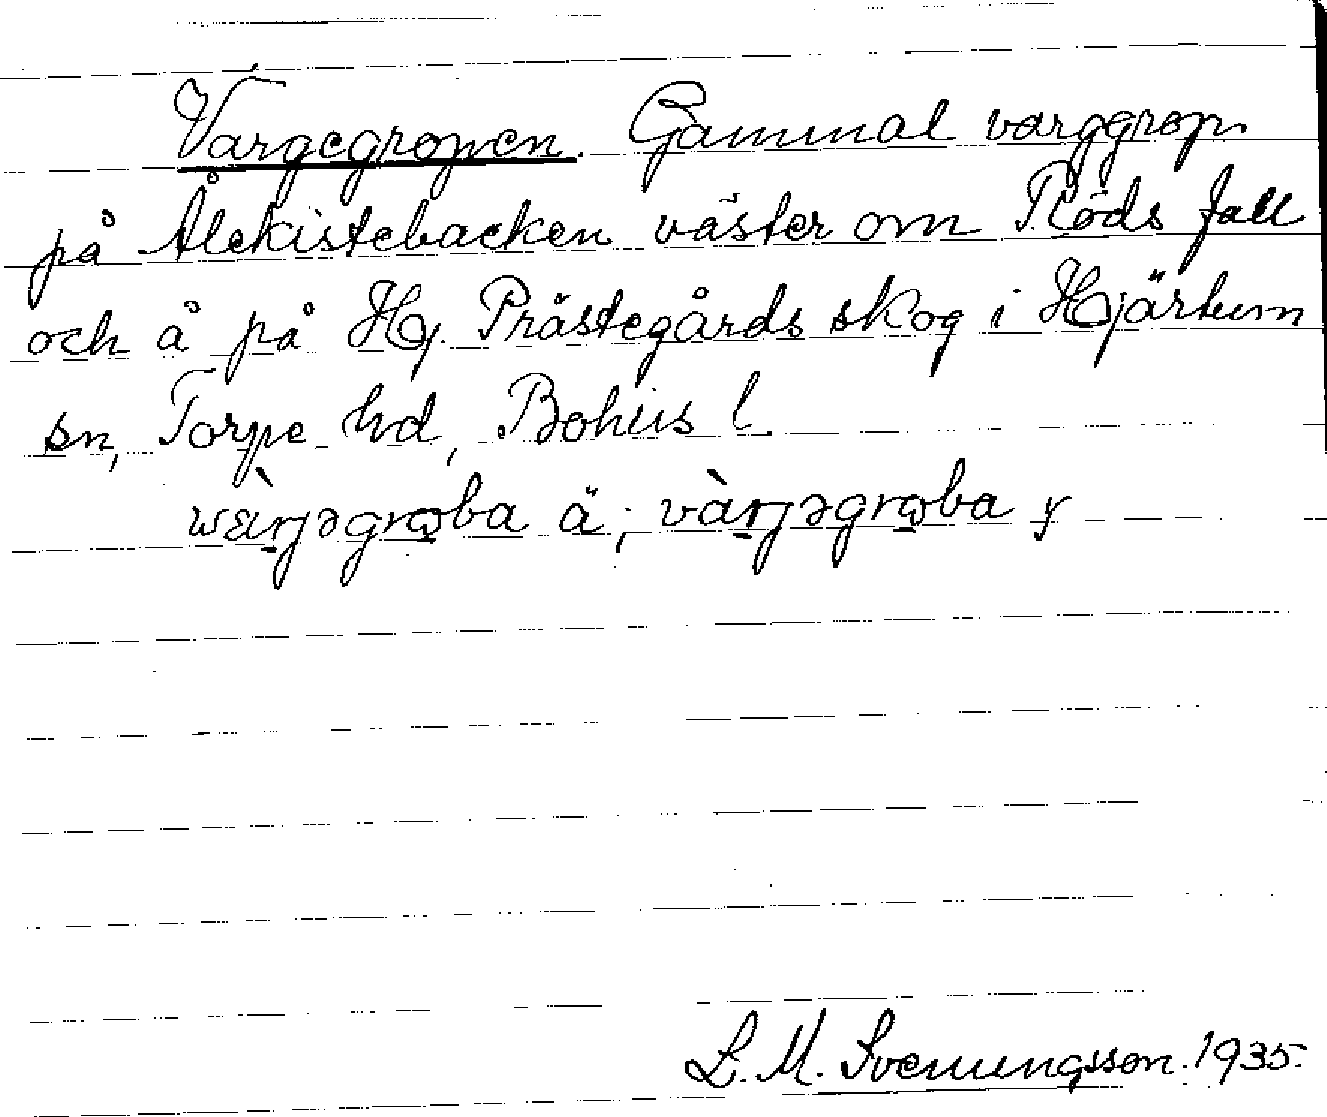 Vargegropen. Gammal varggrop
på Ålekistebacken väster om Röds fall
och å på Hj. Prästegårds skog i Hjärtum
sn, Torpe hd, Bohus l
wàrjəgroba ä; vàrjəgroba y
L. M. Svenungsson. 1935.